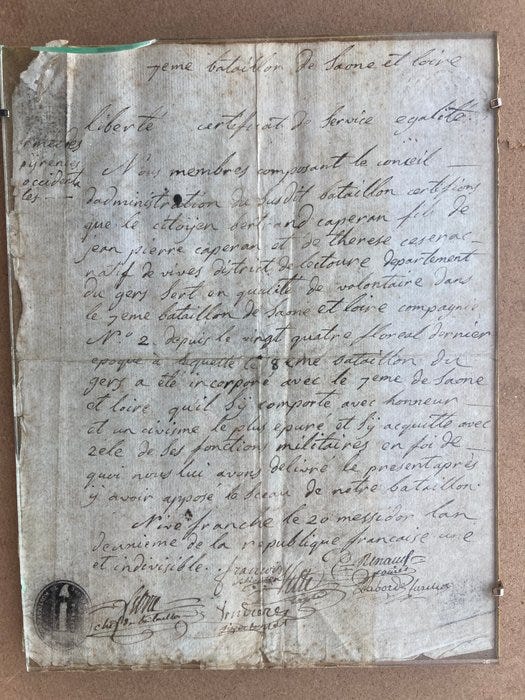 7eme bataillon de Saone et loire
liberté certificat de service egalité.
pyrenées
occidenta
les
Nous membres composant le conseil
dadministration du susdit bataillon certifions
que le citoyen bertrand caperan fils de
jean pierre caperan et de therese
natif de vives district de lectoure departement
du gers sert en qualité de volontaire dans
le 7eme bataillon de Saone et loire compagnie
N.o 2 depuis le vingt quatre floreal dernier
epoque a laquelle le 8eme bataillon du
gers a été incorporé avec le 7eme de Saone
et loire quil s'y comporte avec honneur
et un civisme le plus epuré et s'y acquitte avec
zele de ses fonctions militaires en foi de
quoi nous lui avons délivré le present après
y avoir apposé le sceau de notre bataillon.
Nive franche le 20 messidor lan
deuxieme de la republique francaise une
et indivisible.
Renaud
chef de bataillon